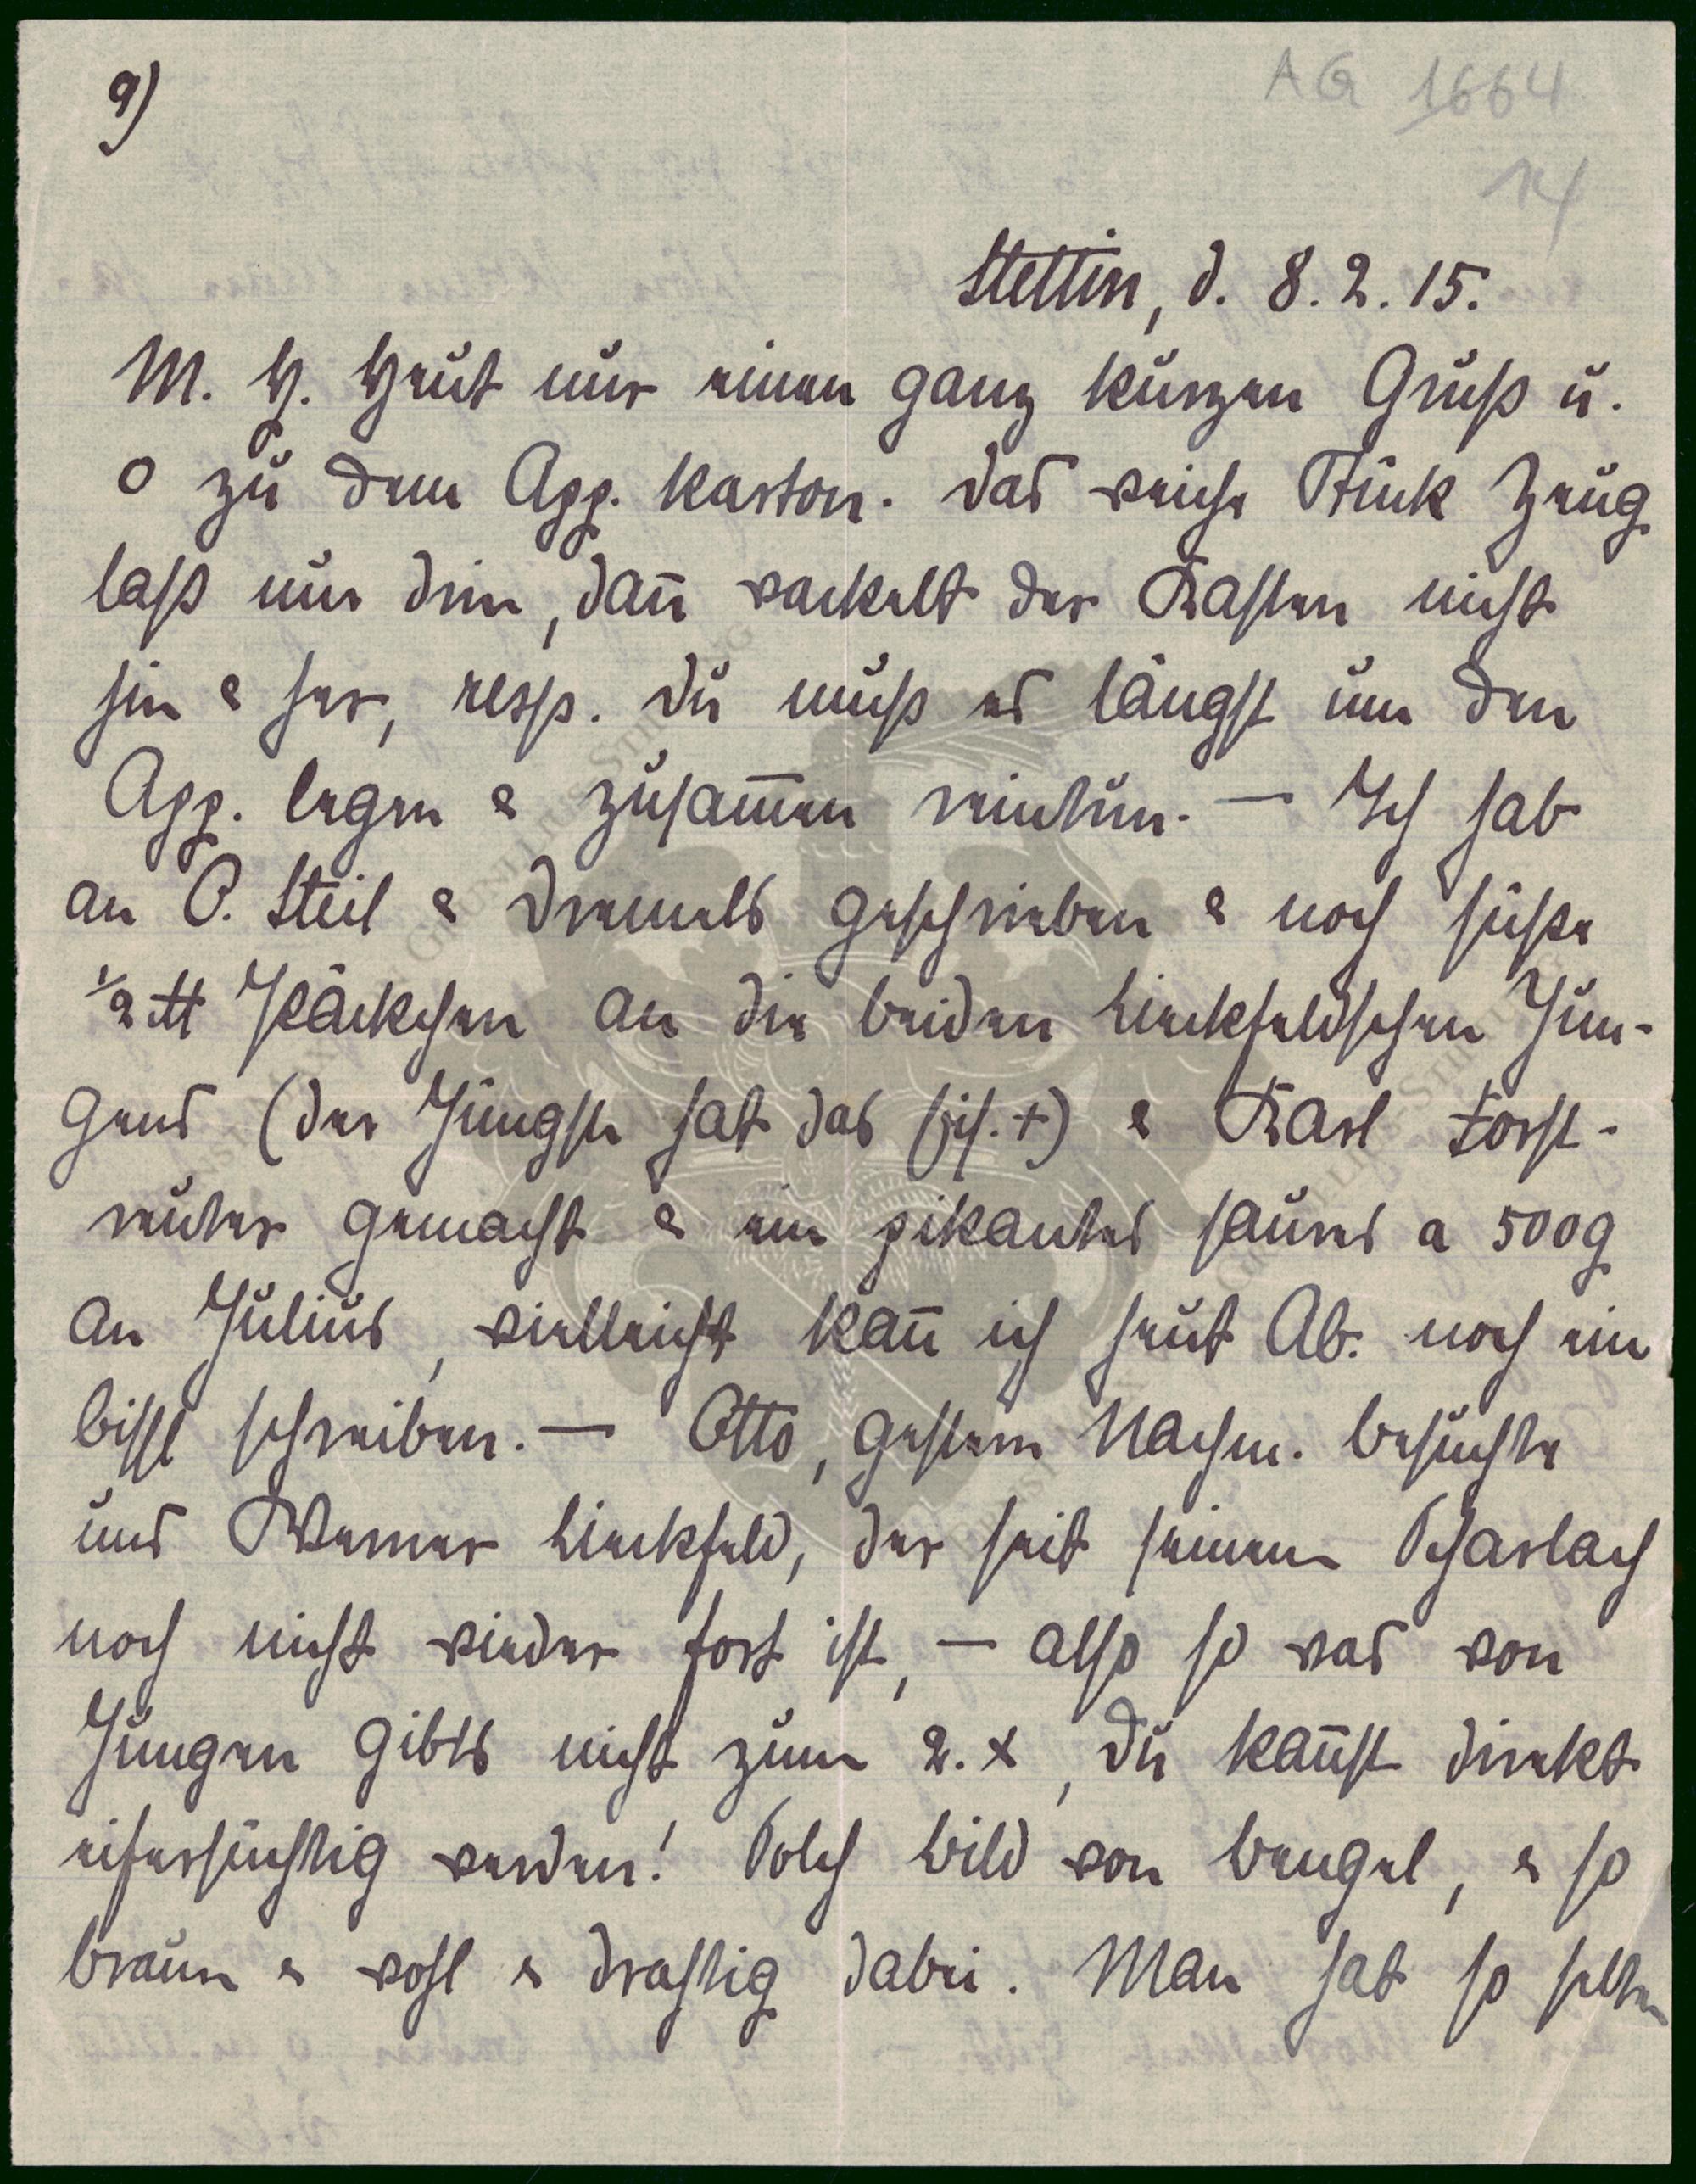 9)
AG 1664
14
Stettin, d. 8. 2. 15.
M. H. Heut nur einen ganz kurzen Gruß u.
o zu dem App. Karton. Das weiche Stück Zeug
laß nur drin, dan̄ wackelt der Kasten nicht
hin & her, resp. Du muß es längst um den
App. legen & zusam̄en reintun. — Ich hab
an O. Steil & Dremels geschrieben & noch süße
½ ℔ Päckchen an die beiden Lieckfeldschen Jun-
gens (der Jüngste hat das eis. +) & Karl Forst-
reuter gemacht & ein pikantes saures a 500g
an Julius, vielleicht kan̄ ich heut Ab. noch ein
bissl schreiben. — Otto, gestern Nachm. besuchte
uns Werner Lieckfeld, der seit seinem Scharlach
noch nicht wieder fort ist, — also so was von
Jungen gibts nicht zum 2. x, Du kan̄st direkt
eifersüchtig werden! Solch Bild von Bengel, & so
braun & wohl & drastig dabei. Man hat so selten